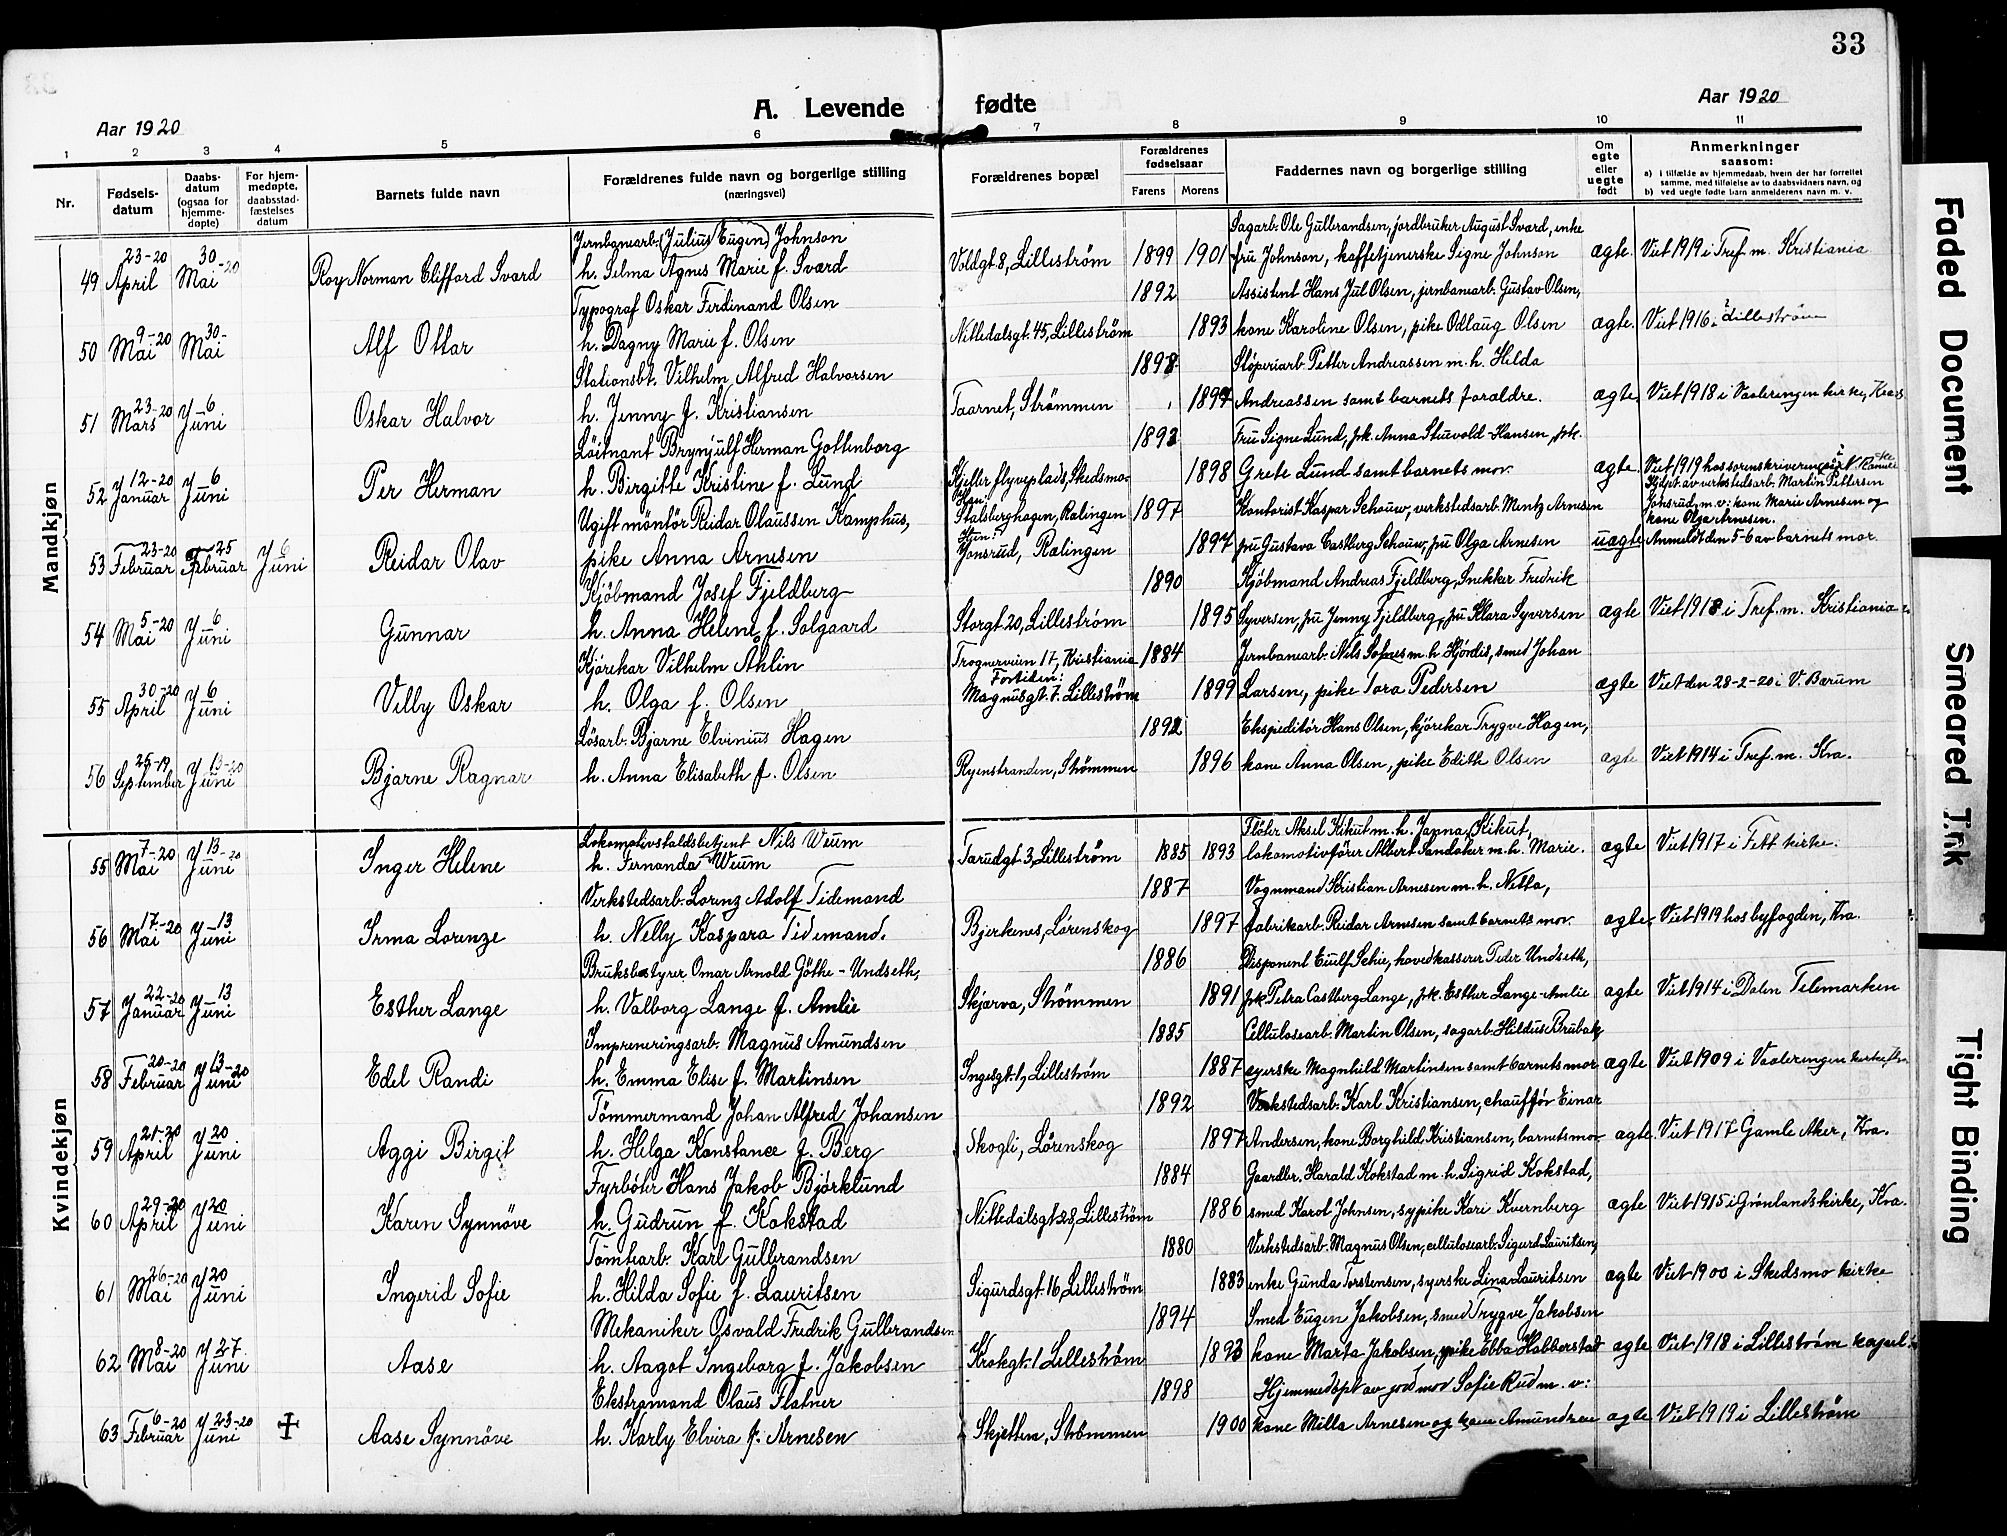 33
A. Levende fødte
Aar 1920
Aar 1920
1 2 3 4 5 6 7 8 9 10 11
Nr.
Fødselsdatum
Daabsdatum (ogsaa for hjemmedøpte)
For hjemmedøpte, daabsstadfæstelses datum
Barnets fulde navn
Forældrenes fulde navn og borgerlige stilling (næringsvei)
Forældrenes bopæl
Forældrenes fødselsaar
Farens Morens
Faddernes navn og borgerlige stilling
Om egte eller uegte født
Anmerkninger saasom:
a) i tilfælde av hjemmedaab, hvem der har forrettet samme, med tilføielse av to daabsvidners navn, og
b) ved uegte fødte barn anmelderens navn m. v.
Mandkjøn
Jernbanearb. (Julius Eugen) Johnson Sagarb. Ole Gulbrandsen, jordbruker August Svard, enke
49 23-20 April 30-20 Mai Roy Norman Clifford Svard h. Selma Agnes Marie f. Svard Voldgt. 8, Lillestrøm 1899 1901 fru Johnson, kaffetjenerske Signe Johnson ægte. Viet 1919 i Tref. m. Kristiania
Typograf Oskar Ferdinand Olsen 1892 Assistent Hans Jul Olsen, jernbanearb. Gustav Olsen,
50 9-20 Mai 30- Mai Alf Ottar h. Dagny Marie f. Olsen Nittedalsgt. 45, Lillestrøm 1893 kone Karoline Olsen, pike Odlaug Olsen ægte. Viet 1916 i Lillestrøm
Stationsbt. Vilhelm Alfred Halvorsen 1898 Støperiarb. Petter Andreassen m. h. Hilda
51 23-20 Mars 6 Juni Oskar Halvor h. Jenny f. Kristiansen Taarnet, Strømmen 1897 Andreassen samt barnets forældre. ægte Viet 1918 i Vaalerengen kirke,
Löitnant Brynjulf Herman Gottenborg 1892 Fru Signe Lund, frk. Anna Stuevold-Hansen, frk.
52 12-20 Januar 6 Juni Per Herman h. Birgitte Kristine f. Lund Kjeller flyveplads, Skedsmo 1898 Grete Lund samt barnets mor. ægte. Viet 1919 hos sorenskriveren i N. Romerike
Ugift montör Reidar Olaussen Kamphus, Han: Stalsberghagen, Rælingen 1897 Kontorist Kaspar Schouw, verkstedsarb. Mentz Arnesen Hjdpt av verkstedsarb. Martin Pettersen Jonsrud, m. v: kone Marie Arnesen og kone Olga Arnesen.
53 23-20 Februar 25 Februar 6 Juni Reidar Olav pike Anna Arnesen Hun: Jonsrud, Rælingen 1897 fru Gustava Castberg Schouw, fru Olga Arnesen uægte Anmeldt den 5-6 av barnets mor.
Kjöbmand Josef Fjeldberg 1890 Kjøbmand Andreas Fjeldberg, Snekker Fredrik
54 5-20 Mai 6 Juni Gunnar h. Anna Helene f. Solgaard Storgt. 20, Lillestrøm 1895 Syversen, fru Jenny Fjeldberg, fru Klara Syversen ægte Viet 1918 i Tref. m. Kristiania
Kjörekar Vilhelm Ahlin Trognerveien 17, Kristiania 1884 Jernbanearb. Nils Sofnes m. h. Hjördis, smed Johan
55 30-20 April 6 Juni Villy Oskar h. Olga f. Olsen Fortiden: Magnusgt. 7. Lillestrøm 1899 Larsen, pike Tora Pedersen ægte Viet den 28-2-20 i V. Bærum
Løsarb. Bjarne Elvinius Hagen 1892 Ekspeditör Hans Olsen, kjörekar Trygve Hagen,
56 25-19 September 13-20 Juni Bjarne Ragnar h. Anna Elisabeth f. Olsen Ryenstranden, Strømmen 1896 kone Anna Olsen, pike Edith Olsen ægte Viet 1914 i Tref. m. Kra.
Kvindekjøn
Lokomotivstaldsbetjent Nils Weum Fløter Aksel Kikut m. h. Janna Kikut,
55 7-20 Mai 13-20 Juni Inger Helene h. Fernanda Weum Tærudgt. 3, Lillestrøm 1885 1893 lokomotivfører Albert Sandaker m. h. Marie. ægte Viet 1917 i Fett kirke.
Verkstedsarb. Lorenz Adolf Tidemand 1887 Vognmand Kristian Arnesen m. h. Netta,
56 17-20 Mai 13 Juni Irma Lorenze h. Nelly Kaspara Tidemand. Bjerkenes, Lørenskog 1897 fabrikarb. Reidar Arnesen samt barnets mor. ægte Viet 1919 hos byfogden, Kra.
Bruksbestyrer Omar Arnold Göthe-Undseth, 1886 Disponent Eiulf Schie, hovedkasserer Peder Undseth,
57 22-20 Januar 13 Juni Esther Lange h. Valborg Lange f. Amlie Skjærva, Strømmen 1891 frk. Petra Castberg Lange, frk. Esther Lange-Amlie ægte Viet 1914 i Dalen Telemarken
Impreneringsarb. Magnus Amundsen 1885 Cellulosearb. Martin Olsen, sagarb. Hildus Brubak,
58 20-20 Februar 13-20 Juni Edel Randi h. Emma Elise f. Martinsen Ingesgt. 1, Lillestrøm 1887 syerske Magnhild Martinsen samt barnets mor ægte Viet 1909 i Vaalerengen kirke,
Tömmermand Johan Alfred Johansen 1892 Verkstedsarb. Karl Kristiansen, chauffør Einar
59 21-20 April 20 Juni Aggi Birgit h. Helga Konstance f. Berg Skogli, Lørenskog 1897 Andersen, kone Borghild Kristiansen, barnets mor ægte. Viet 1917 Gamle Aker, Kra.
Fyrbøter Hans Jakob Björklund 1884 Gaardbr. Harald Kokstad m. h. Sigrid Kokstad,
60 29-20 April 20 Juni Karen Synnöve h. Gudrun f. Kokstad Nittedalsgt. 28, Lillestrøm 1886 smed Karol Johnsen, sypike Kari Kvernberg ægte Viet 1915 i Grønlands kirke, Kra.
Tomtearb. Karl Gulbrandsen 1880 Verkstedsarb. Magnus Olsen, cellulosearb. Sigurd Lauritsen,
61 26-20 Mai 20 Juni Ingerid Sofie h. Hilda Sofie f. Lauritsen Sigurdsgt. 16, Lillestrøm 1883 enke Gunda Torstensen, syerske Lina Lauritsen ægte Viet 1900 i Skedsmo kirke
Mekaniker Osvald Fredrik Gulbrandsen 1894 Smed Eugen Jakobsen, smed Trygve Jakobsen
62 8-20 Mai 27 Juni Aase h. Aagot Ingeborg f. Jakobsen Krokgt. 1 Lillestrøm 1893 kone Marta Jakobsen, pike Ebba Habberstad ægte Viet 1918 i Lillestrøm kapel.
Ekstramand Olaus Flatner 1898 Hjemmedöpt av jordmor Sofie Rud m. v:
63 6-20 Februar 23-20 Juni Aase Synnöve h. Karly Elvira f. Arnesen Skjetten, Strømmen 1900 kone Milla Arnesen og kone Amundsen ægte Viet 1919 i Lillestrøm
Faded Document
Smeared Ink
Tight Binding